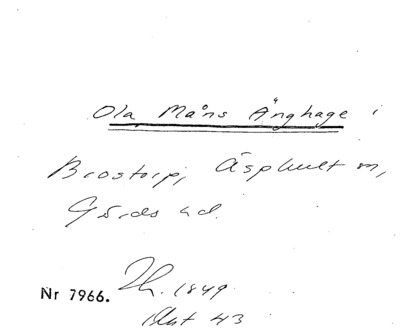 Ola Måns Änghage i
Brostorp, Äsphult sn,
Gärds hd.
Nr 7966. Th. 1849
Akt 43